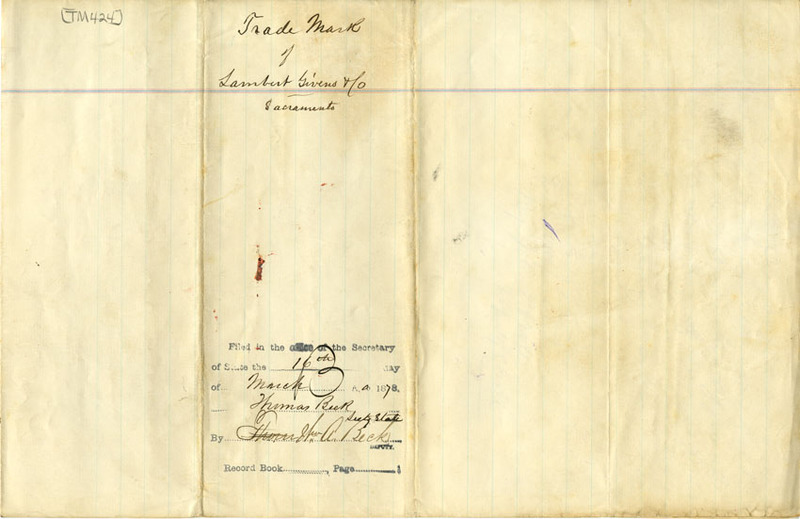 [TM424]
Trade Mark
of
Lambert Givens & Co
Sacramento
Filed in the office of the Secretary
of State the 16th day
of March A.D. 1878.
Thomas Beck
Secty State
By Wm A. Beck
DEPUTY.
Record Book , Page